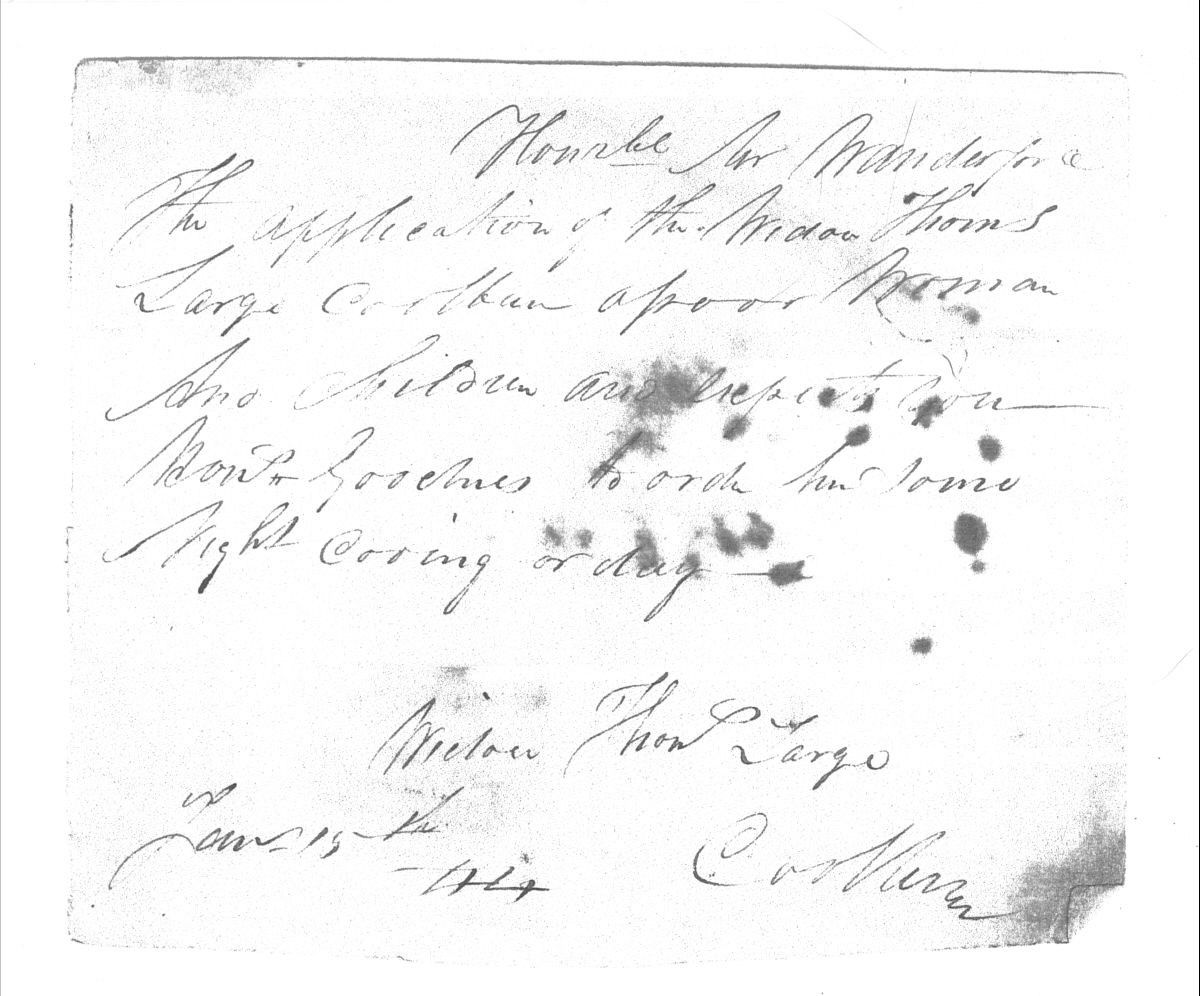 Honrble Sir Wanderforce
The application of the Widow Thoms
Large Coolkun a poor Woman
And Children and expects your
Honr Goodnes to order her some
Night Coving or day
Widow Thoms Large
Janr 15th